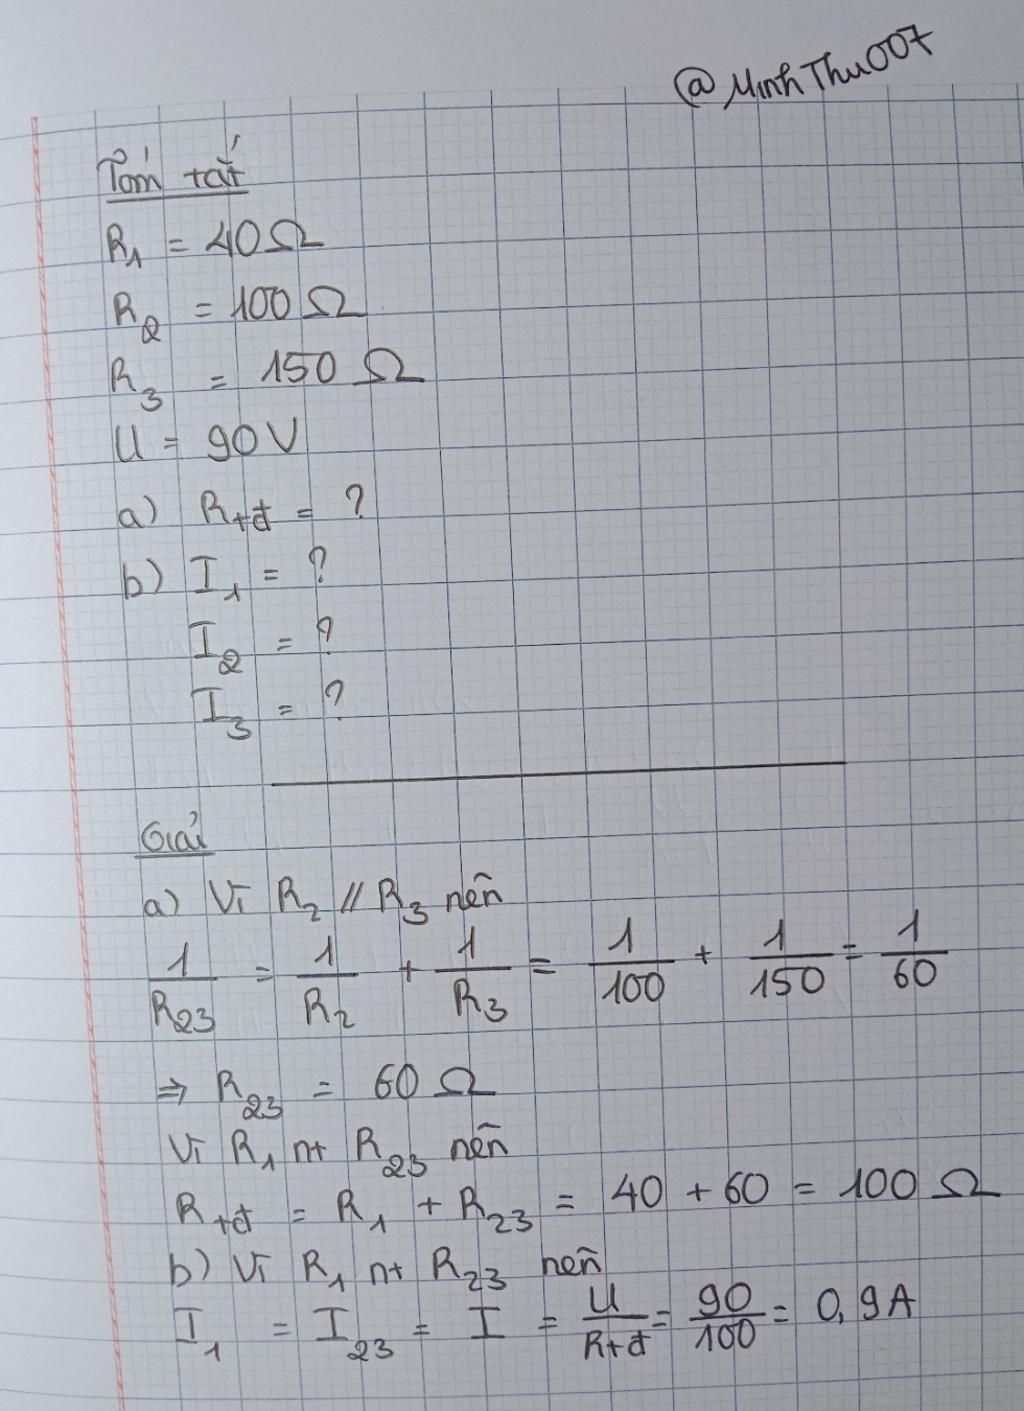 @MinhThu007
Tóm tắt
R₁ = 40Ω
R₂ = 100Ω
R₃ = 150Ω
U = 90V
a) Rtđ = ?
b) I₁ = ?
I₂ = ?
I₃ = ?
Giải
a) Vì R₂ // R₃ nên
1/R₂₃ = 1/R₂ + 1/R₃ = 1/100 + 1/150 = 1/60
⇒ R₂₃ = 60Ω
Vì R₁ nt R₂₃ nên
Rtđ = R₁ + R₂₃ = 40 + 60 = 100Ω
b) Vì R₁ nt R₂₃ nên
I₁ = I₂₃ = I = U/Rtđ = 90/100 = 0,9A